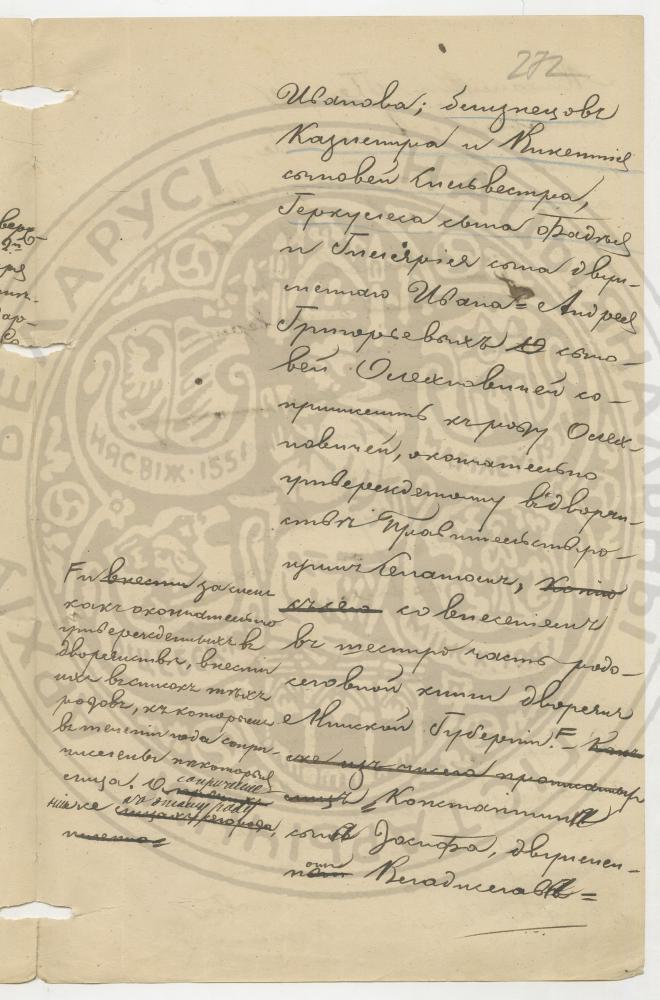 272
Иванова; близнецовъ
Казимира и Викентія
сыновей Сильвестра,
Геркулеса сына Фадѣя
и Гилярія сына двуи-
меннаго Ивана = Андрея
Григорьевыхъ сыно-
вей Олехновичей со-
причислить къ роду Олех-
новичей, окончательно
утвержденному въ дворян-
ствѣ Правительствую-
щимъ Сенатомъ,
со внесеніемъ
въ шестую часть родо-
словной книги дворянъ
Минской Губерніи. F
Константина
сына Іосифа, двуимен-
Владислава =
F и внести за симъ
какъ окончательно
утвержденныхъ въ
дворянствѣ, внести
ихъ въ списокъ тѣхъ
родовъ, къ которымъ
въ теченіи года сопри-
числены нѣкоторыя
лица. О сопричисле-
ніи же къ этому роду